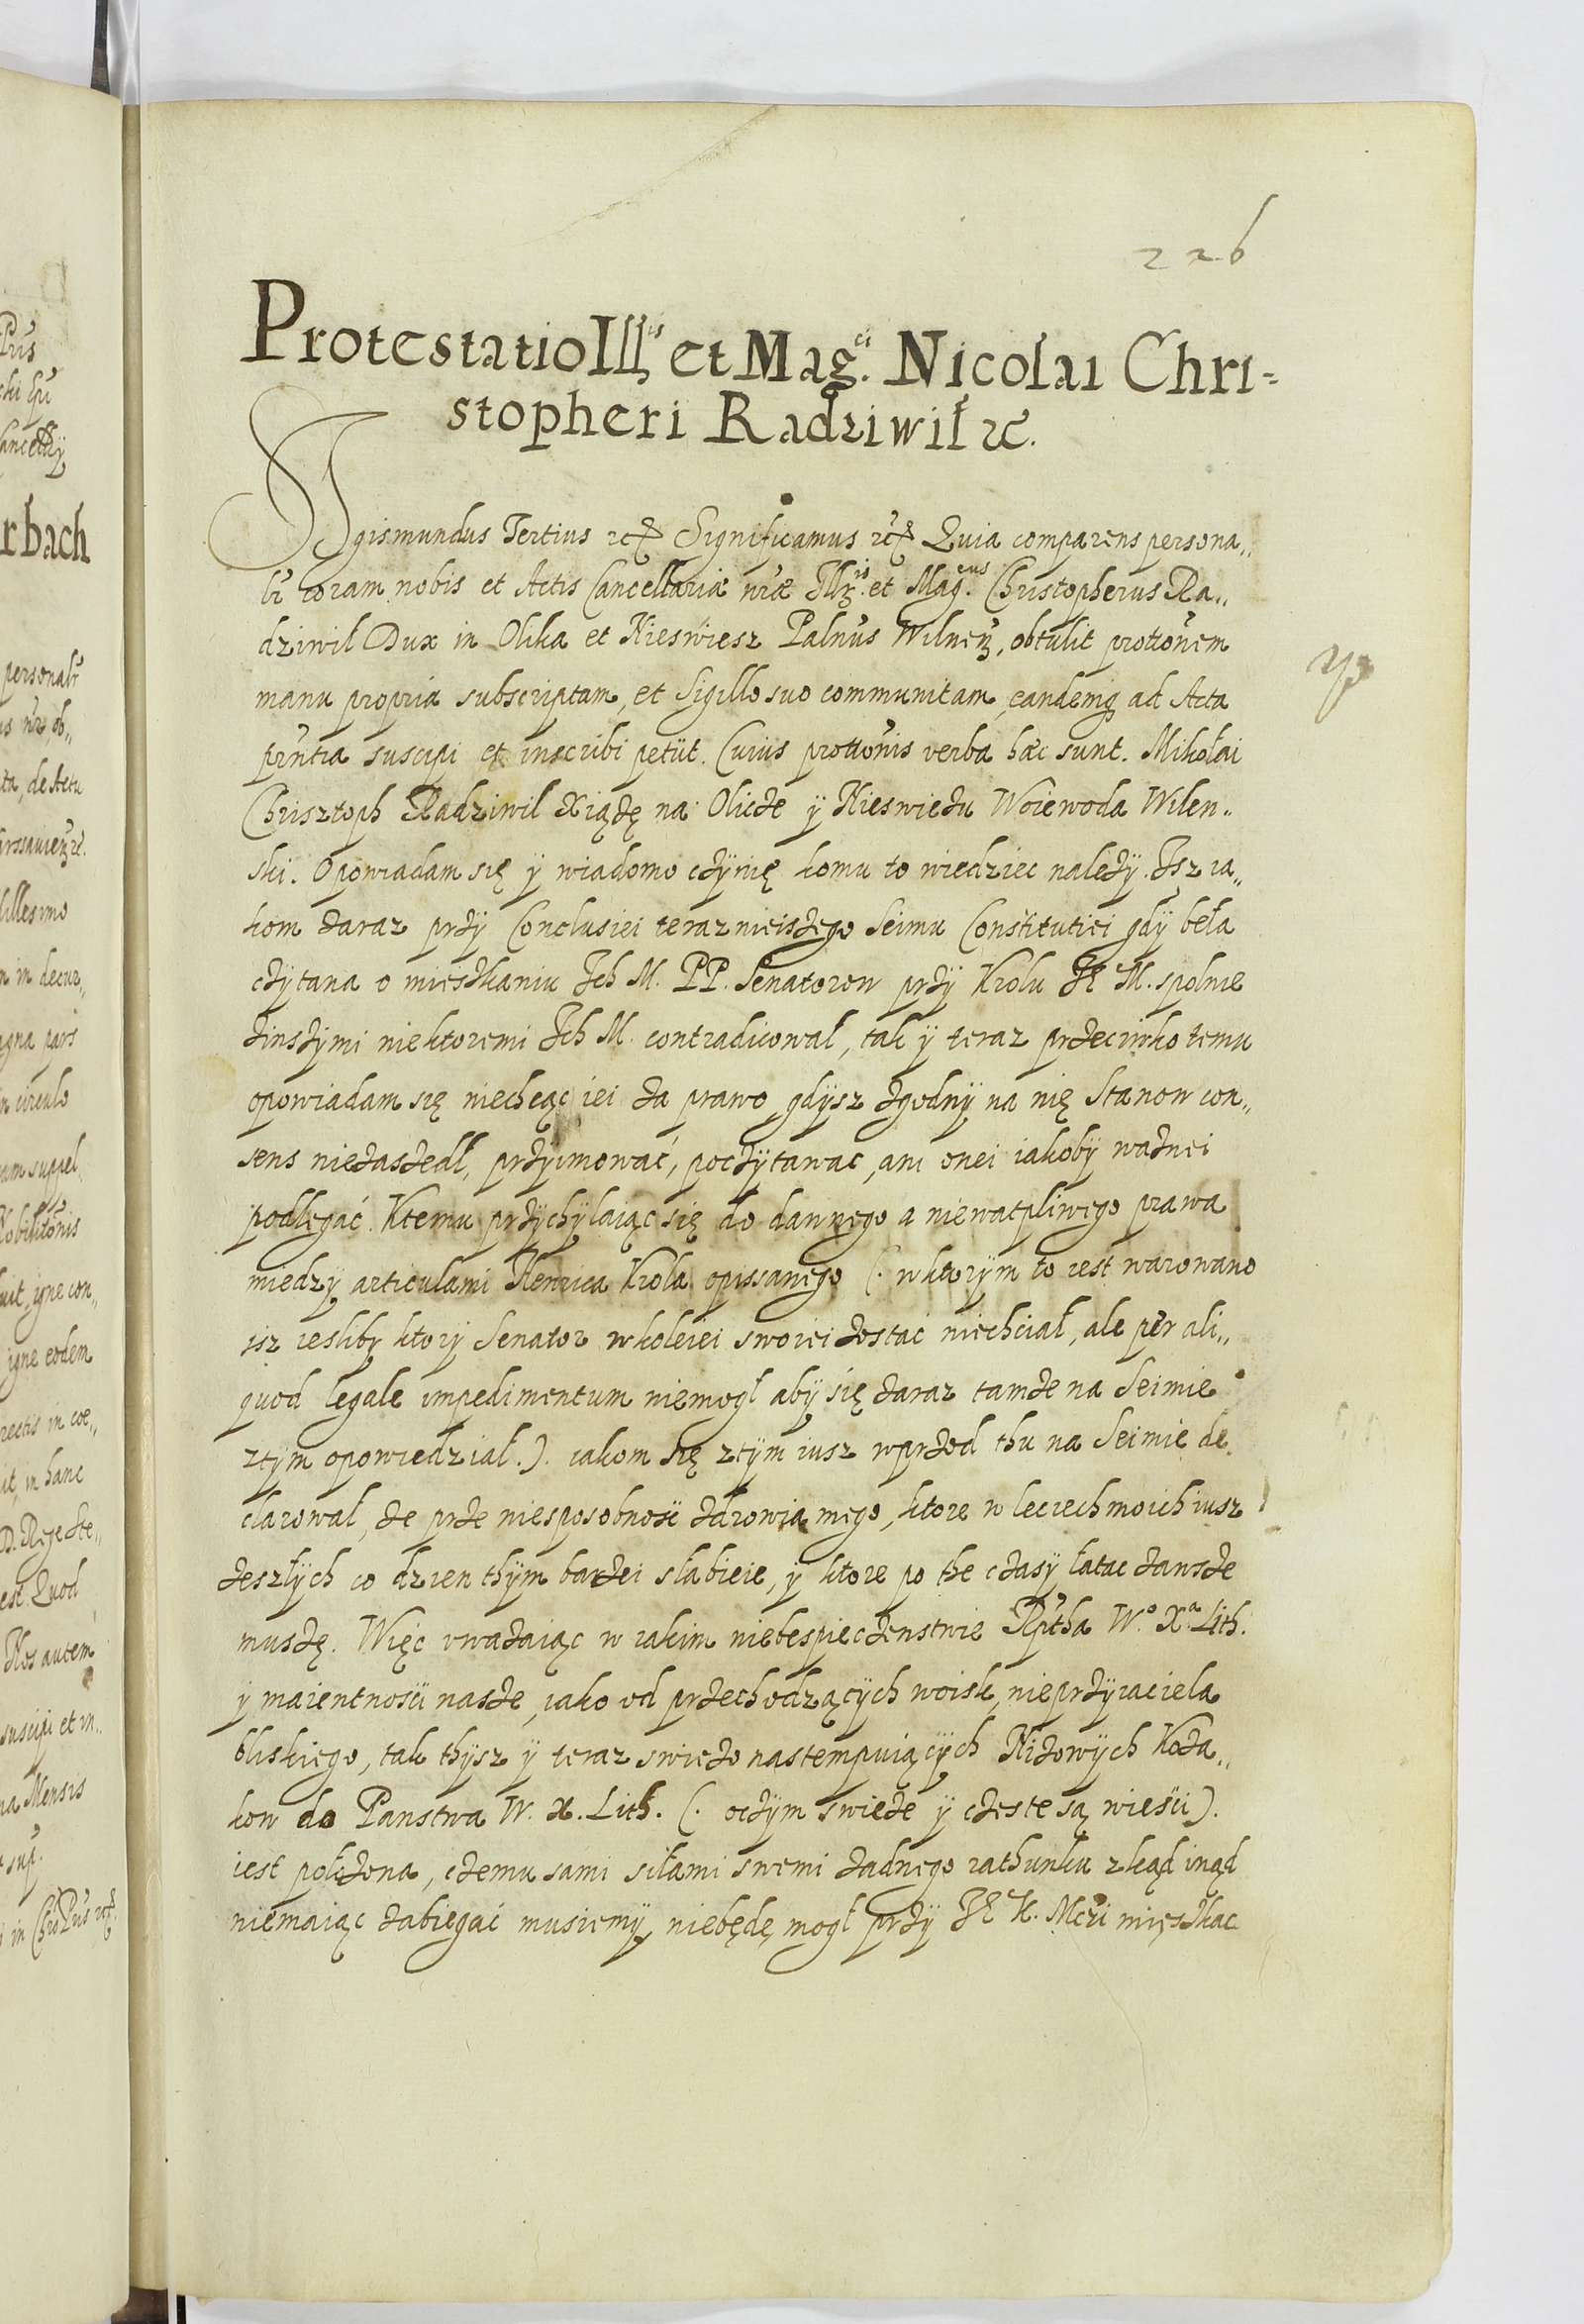 226
Protestatio Illris et Magci. Nicolai Chri-
stopheri Radziwił etc.
Sigismundus Tertius etc. Significamus etc. Quia comparens persona„
lr coram nobis et Actis Cancellariæ nræ Illris. et Mageus. Christopherus Ra„
dziwil Dux in Olika et Nieswiesz Palnus Wilnen., obtulit prottonem
manu propria subscriptam, et Sigillo suo communitam, eandemq ad Acta
prntia suscipi et inscribi petüt. Cuius prottonis verba hæc sunt. Mikołai
Chrisztoph Radziwil Xiążę na Olicze ÿ Nieswiezu Woiewoda Wilen„
ski. Opowiadam się ÿ wiadomo czÿnię komu to wiedziec należÿ. Isz ia„
kom zaraz przÿ Conclusiei terazniejszego Seimu Constitutiei gdÿ beła
czÿtana o mieszkaniu Ich M. PP. Senatorow przÿ Krolu JE M. spolnie
zinszÿmi niektoremi Ich M. contradicował, tak ÿ teraz przeciwko temu
opowiadam się niechcąc iei za prawo gdÿsz zgodnÿ na nię Stanow con„
sens niezaszedł, przÿimować, poczÿtawac, ani onei iakobÿważnei
podlegać. Ktemu przÿchÿlaiąc się do dawnego a niewatpliwego prawa
miedzÿ articulami Henrica Krola opissanego (. wktorÿm to iest warowano
isz iesliby ktorÿ Senator wkoleiei swoiei zostać niechciał, ale per ali„
quod legale impedimentum niemogł abÿ się zaraz tamze na Seimie
ztÿm opowiedział.). iakom się ztÿm iusz wprzod thu na Seimie de
clarował, ze prze niesposobnosć zdrowia mego, ktore w leciech moich iusz
zeszłÿch co dzien thÿm barzei słabieie, ÿ ktore po the czasÿ łatac zawsze
muszę. Więc vważaiąc w iakim niebespieczenstwie Rptha Wo. Xa. Lith.
ÿ maientnosci nasze, iako od przechodzącÿch woisk, nieprzÿiaciela
bliskiego, tak thÿsz ÿ teraz swiezo nastempuiącÿch Nizowÿch Koza„
kow do Panstwa W. X. Lith. (. oczÿm swieze ÿ czeste są wiesci).
iest położona, czemu sami siłami swemi żadnego rathunku zkąd inąd
niemaiąc zabiegać musiemÿ, niebędę mogł przÿ JE K. Mczi mięszkac